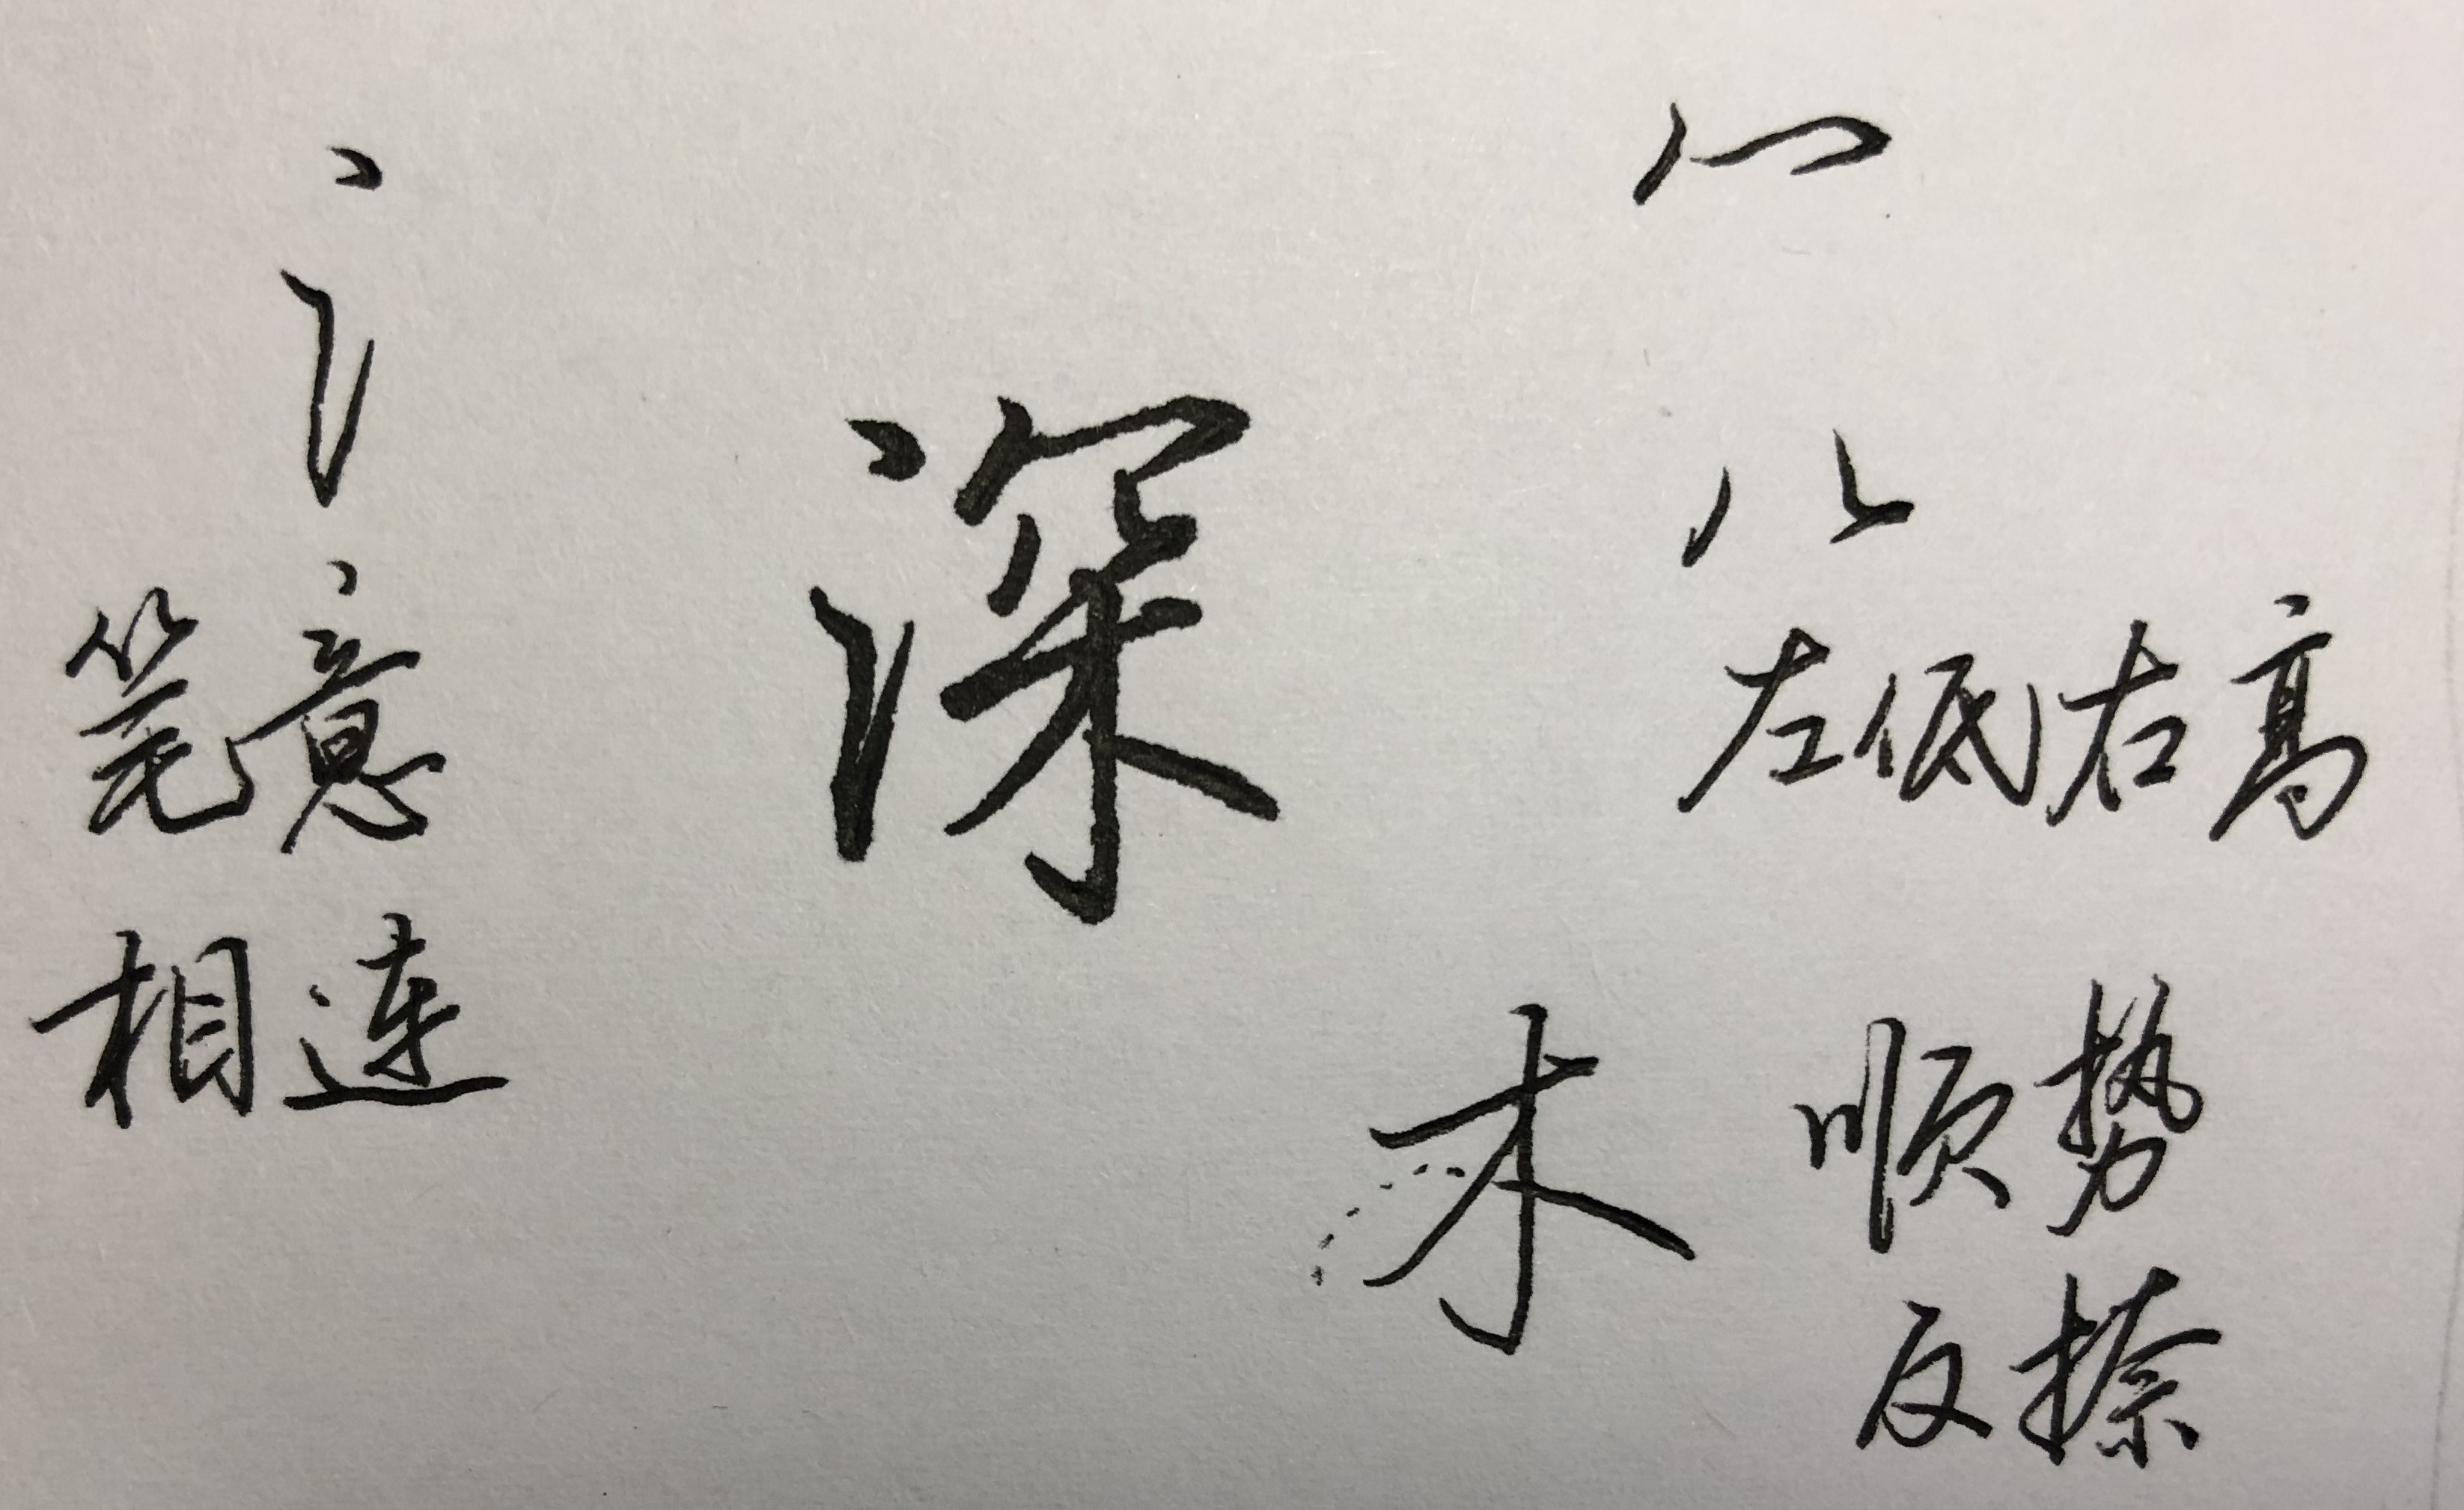 深
笔意
相连
左低右高
木
顺势
反捺